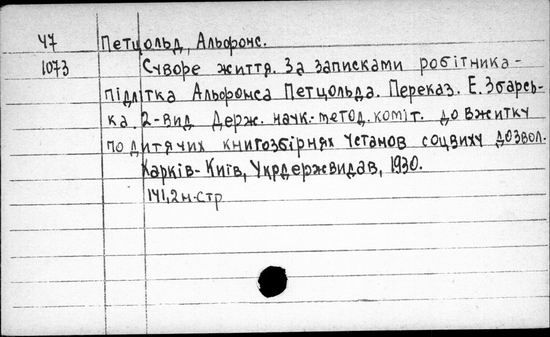 47 Петцольд, Альфонс.
1073 Суворе життя. За записками робітника-
підлітка Альфонса Петцольда. Переказ. Е. Збарсь-
ка. 2-вид Держ. наук.-метод. коміт. до вжитку
по дитячих книгозбірнях установ соцвиху дозвол.
Харків-Київ, Укрдержвидав, 1930.
141, 2 н. стр